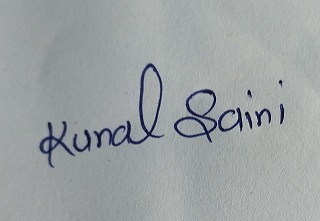 Kunal Saini